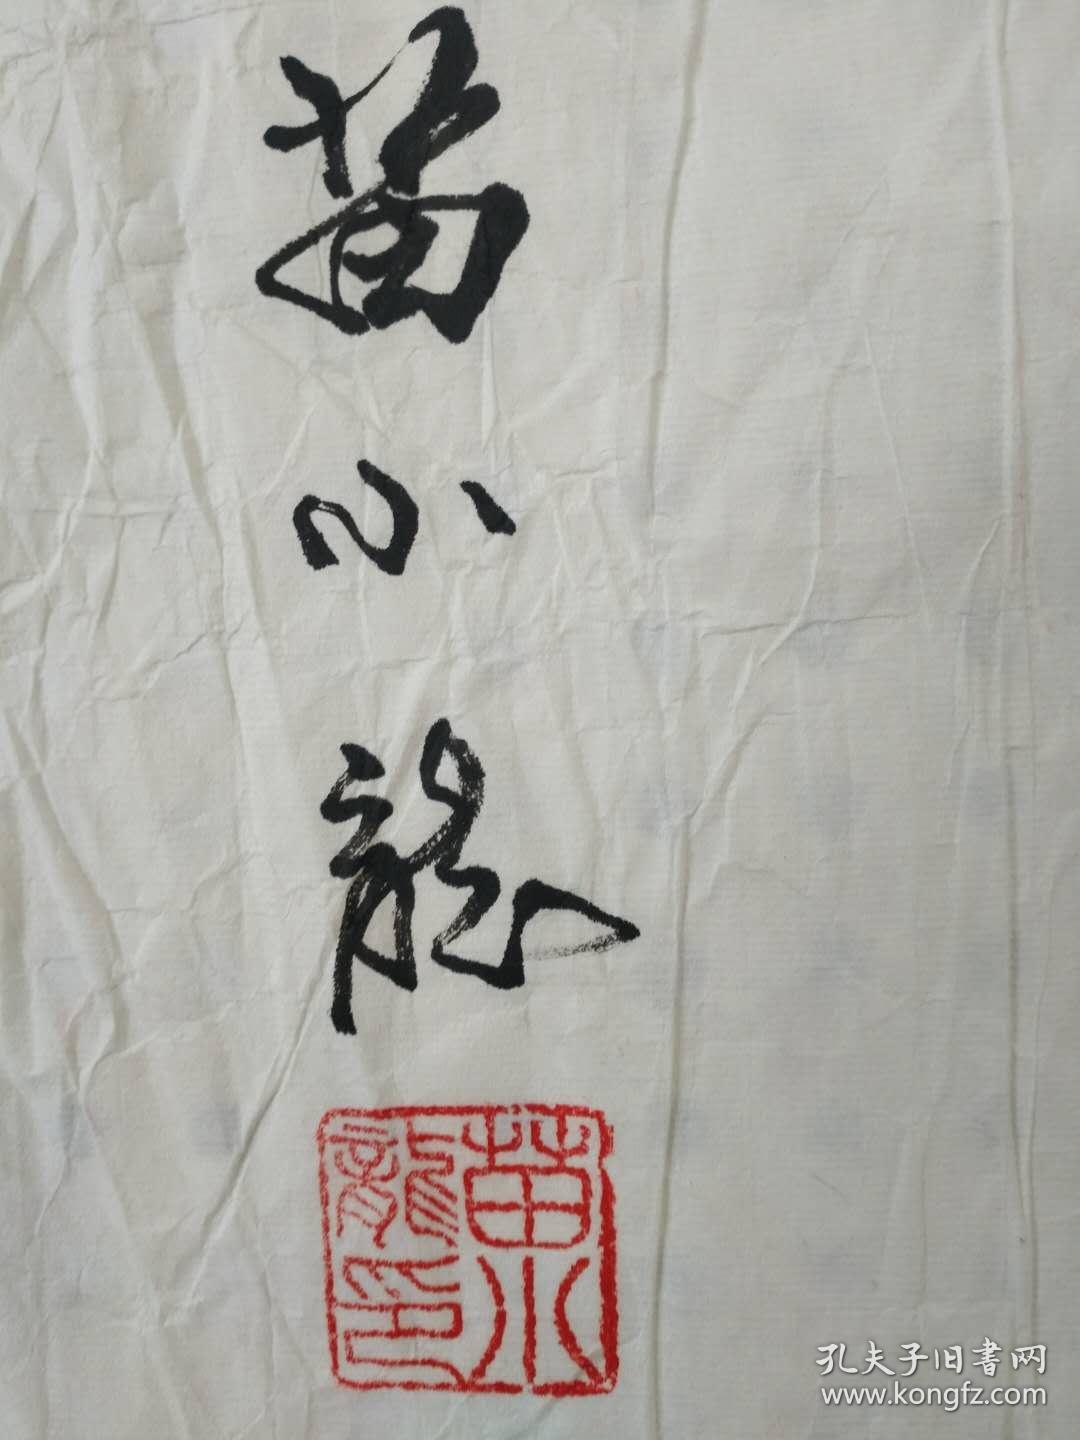 苗小龍
苗小
龍印
孔夫子旧書网
www.kongfz.com